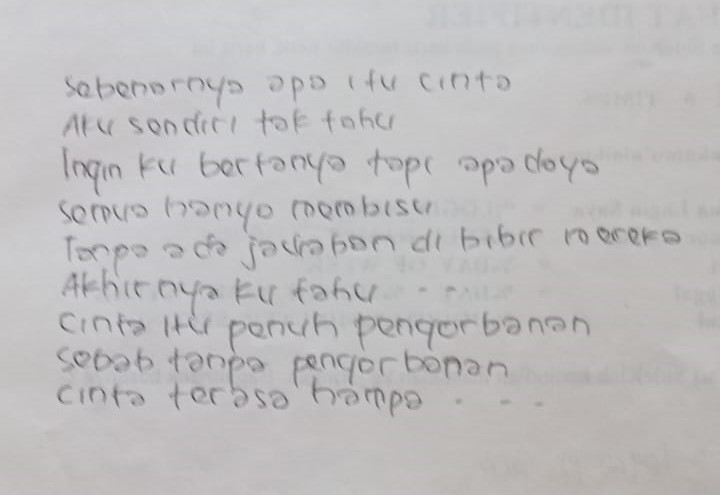 Sebenarnya apa itu cinta
Aku sendiri tak tahu
Ingin ku bertanya tapi apa daya
semua hanya membisu
Tanpa ada jawaban di bibir mereka
Akhirnya ku tahu . . .
cinta itu penuh pengorbanan
sebab tanpa pengorbanan
cinta terasa hampa . . .